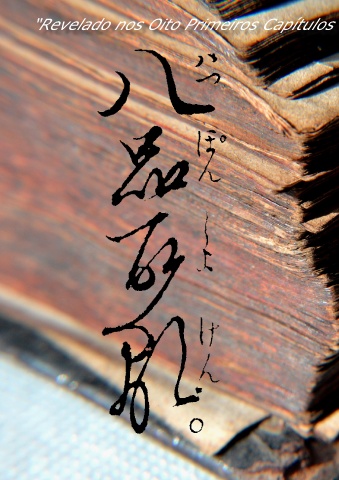 "Revelado nos Oito Primeiros Capítulos
八品所顕
はつぽんしよけん。